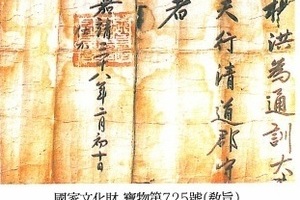 楊洪為通訓大
夫行清道郡守
者
嘉靖 八年二月初十日
國家文化財 寶物第725號(敎旨)